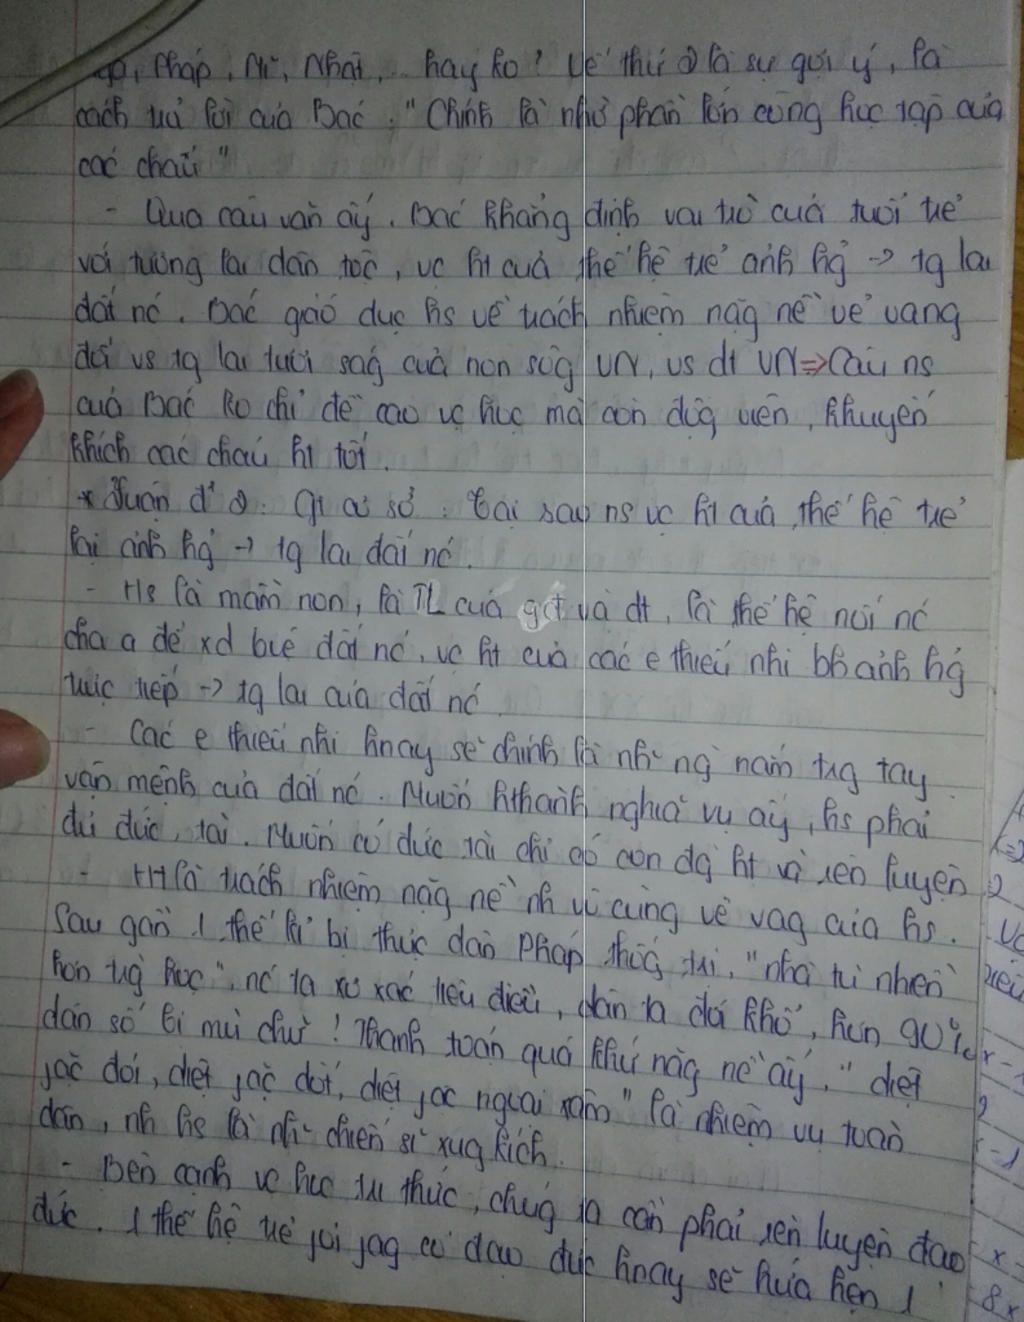 Pháp, Mĩ, Nhật, .. hay ko? Vế thứ 2 là sự gợi ý, là
cách trả lời của Bác: "Chính là nhờ phần lớn công học tập của
các cháu"
- Qua câu văn ấy, Bác khẳng định vai trò của tuổi trẻ
với tương lai dân tộc, vc ht của thế hệ trẻ ảnh hg -> tg lai
đất nc. Bác giáo dục hs về trách nhiệm nặg nề vẻ vang
đối vs tg lai tươi ság của non sôg VN, vs dt VN => Câu ns
của Bác ko chỉ đề cao vc học mà còn độg viên, khuyến
khích các cháu ht tốt.
* Luận đ' 2: Gt cơ sở: Tại sao ns vc ht của thế hệ trẻ
lại ảnh hg -> tg lai đất nc.
- Hs là mầm non, là TL của gđ và đt, là thế hệ nối nc
cha a để xd bvệ đất nc, vc ht của các e thiếu nhi bh ảnh hg
trực tiếp -> tg lai của đất nc
- Các e thiếu nhi hnay sẽ chính là nh~ ng nắm trg tay
vận mệnh của đất nc. Muốn hthành nghĩa vụ ấy, hs phải
đủ đức, tài. Muốn có đức tài chỉ có con đg ht và rèn luyện
- HT là trách nhiệm nặg nề nh vô cùng vẻ vag của hs.
Sau gần 1 thế kỉ bị thực dân Pháp thốg trị, "nhà tù nhiều
hơn trg học", nc ta xơ xác tiêu điều, dân ta đói khổ, hơn 90%
dân số bị mù chữ! Thanh toán quá khứ nặg nề ấy, "diệt
jặc đói, diệt jặc dốt, diệt jặc ngoại xâm" là nhiệm vụ toàn
dân, nh hs là nh~ chiến sĩ xug kích.
- Bên cạnh vc học tri thức, chúg ta cần phải rèn luyện đạo
đức. 1 thế hệ trẻ jỏi jag có đạo đức hnay sẽ hứa hẹn 1